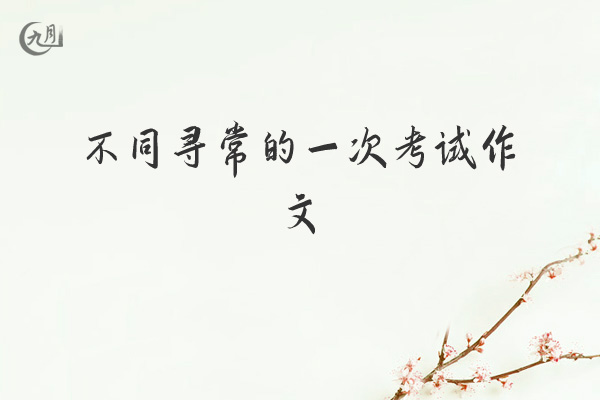 九月
不同寻常的一次考试作
文